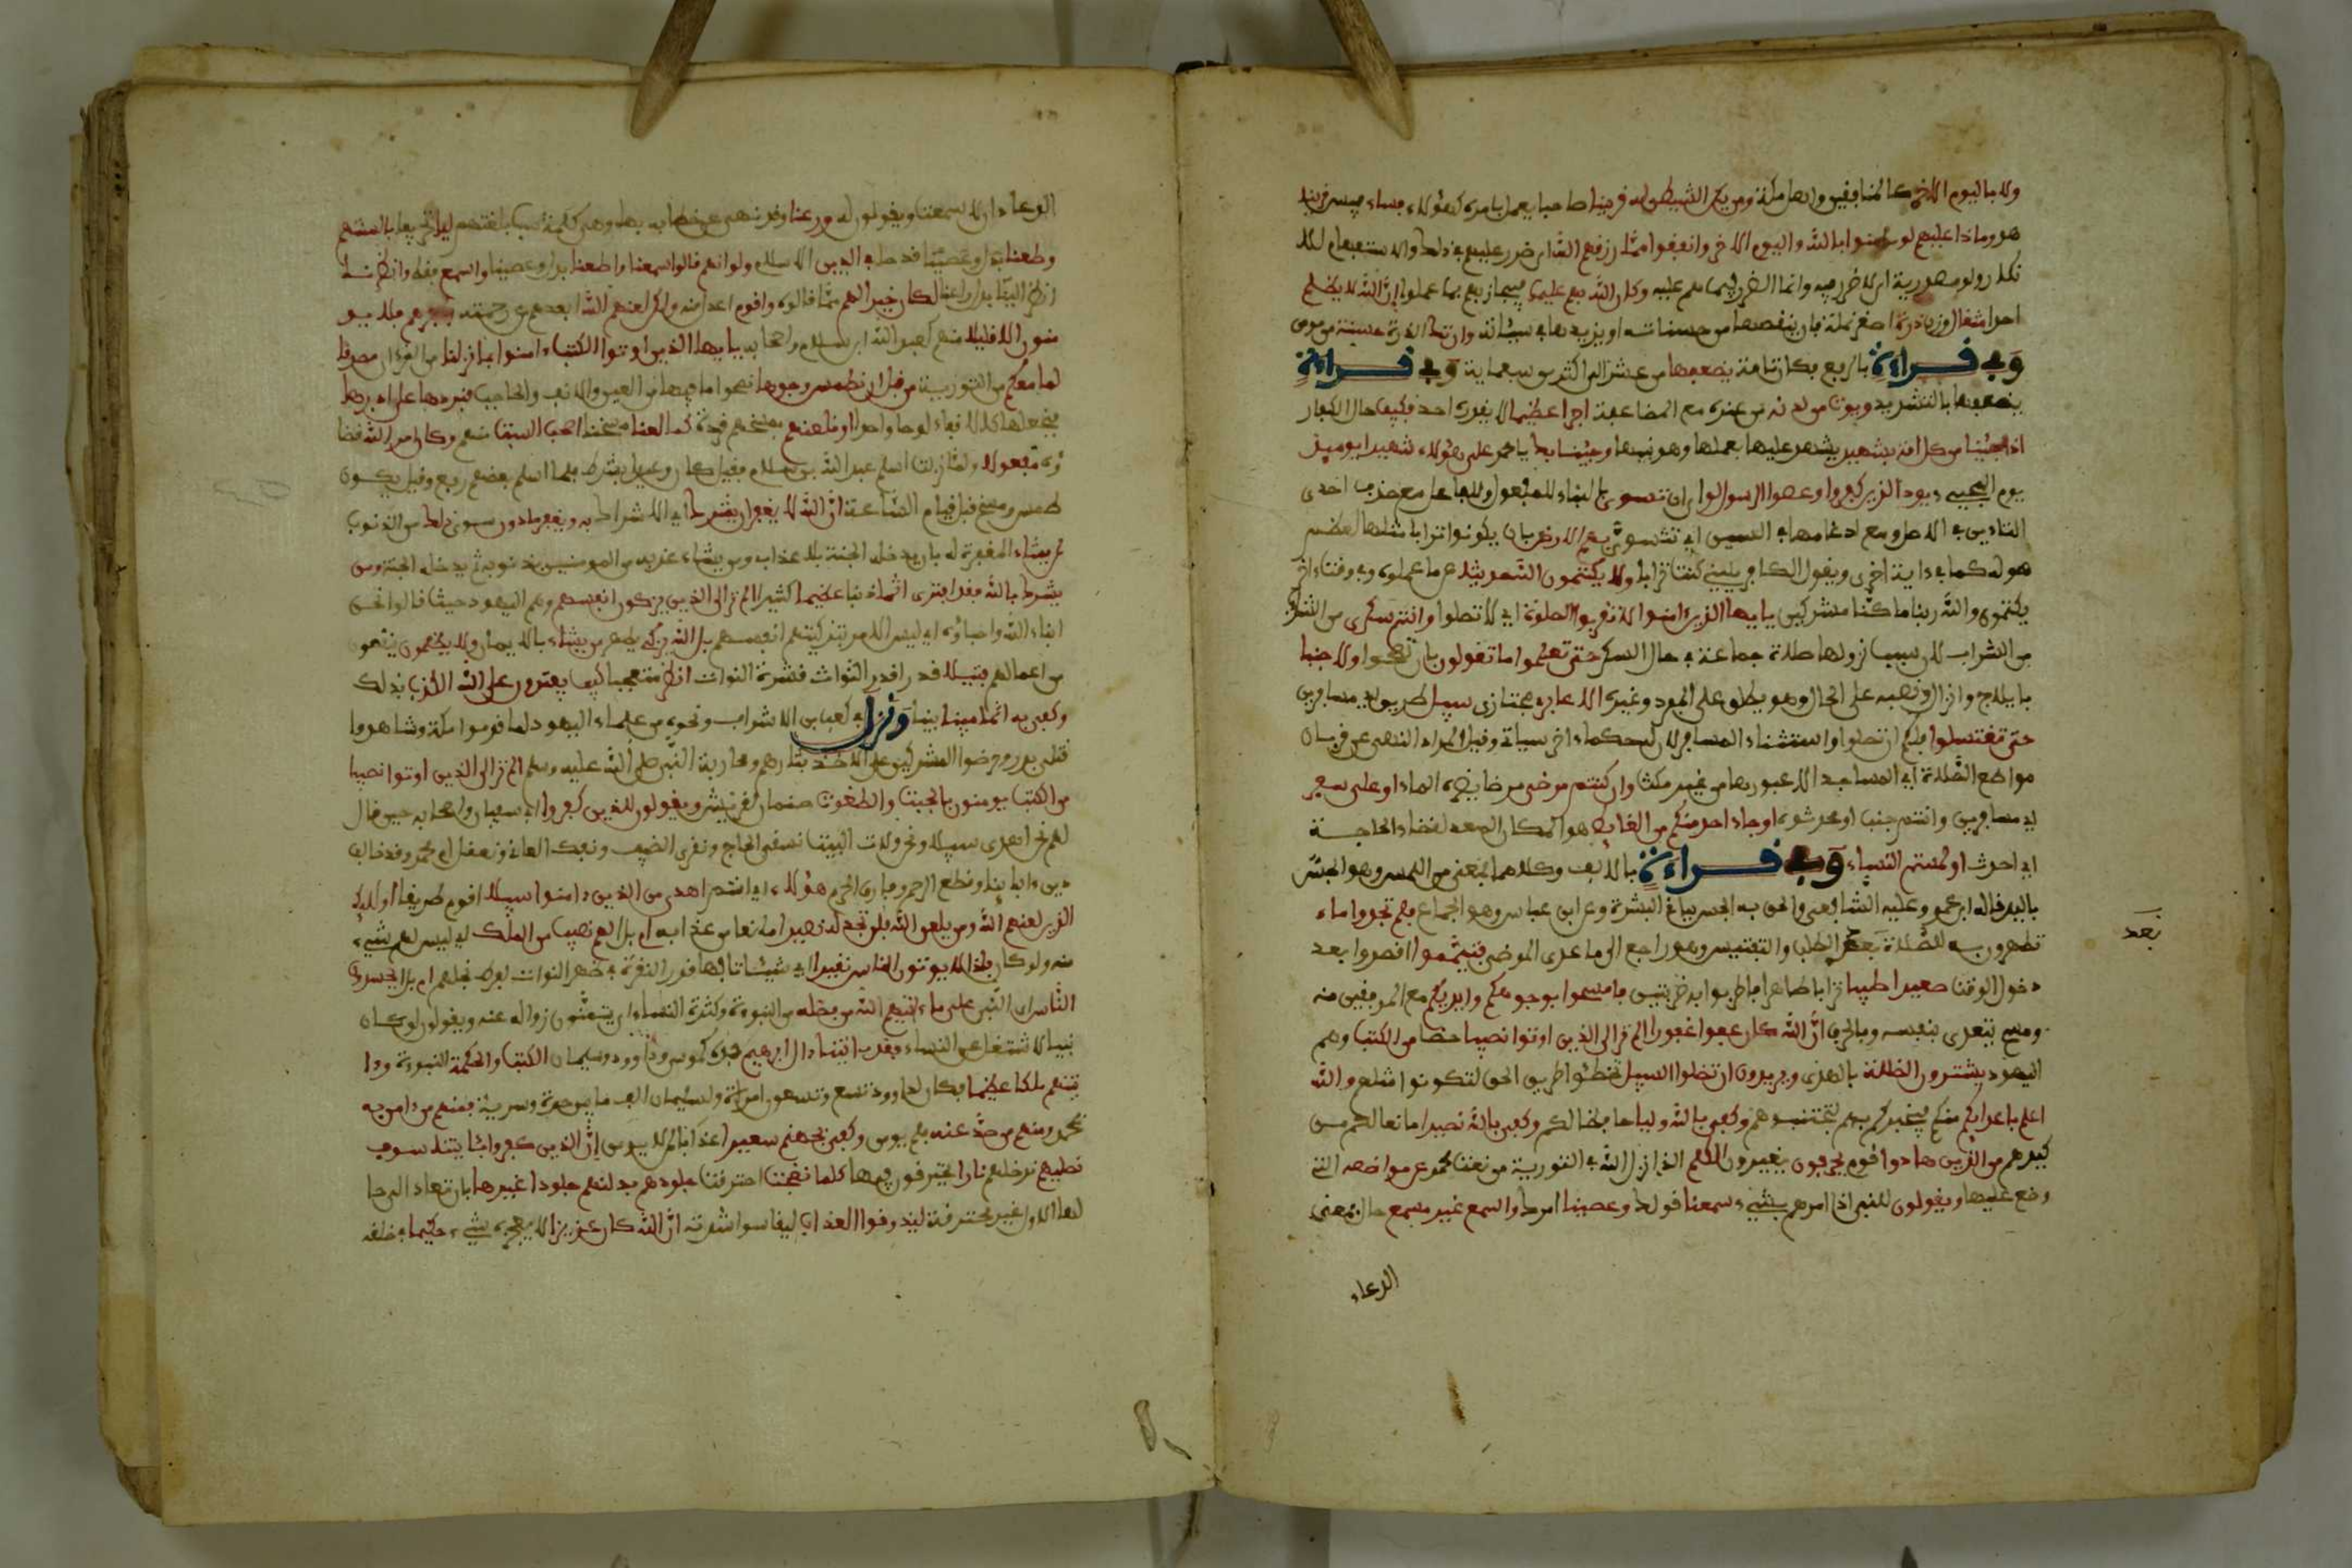 ولا باليوم الاخر كالمنافقين واهل مكة ومن يكن الشيطن له قرينا صاحبا يعمل بامره كهؤلاء فساء بيس قرينا
هو وماذا عليهم لو ءامنوا بالله واليوم الاخر وانفقوا مما رزقهم الله اى ضرر عليهم فى ذلك والاستفهام للا
نكار ولو مصدرية اى لا ضرر فيه وانما الضرر فيما هم عليه وكان الله بهم عليما فيجازيهم بما عملوا ان الله لا يظلم
احدا مثقال وزن ذرة اصغر نملة بان ينقصها من حسناته او يزيدها فى سيئاته وان تك الذرة حسنة من مومن
وفى قراءة بالرفع فكان تامة يضعفها من عشر الى اكثر من سبعماية وفى قراءة
يضعفها بالتشديد ويوت من لدنه من عنده مع المضاعفة اجرا عظيما لا يقدره احد فكيف حال الكفار
اذا جئنا من كل امة بشهيد يشهد عليها بعملها وهو نبيها وجئنا بك يا محمد على هؤلاء شهيدا يوميذ
يوم المجىء يود الذين كفروا وعصوا الرسول لو اى ان تسوى بالبناء للمفعول وللفاعل مع حذف احدى
التاءين فى الاصل ومع ادغامها فى السين اى تتسوى بهم الارض بان يكونوا ترابا مثلها لعظم
هوله كما فى ءاية اخرى ويقول الكافر يليتنى كنت ترابا ولا يكتمون الله حديثا عما عملوه وفى وقت ءاخر
يكتمون والله ربنا ما كنا مشركين يايها الذين ءامنوا لا تقربوا الصلوة اى لا تصلوا وانتم سكرى من الشراب
من الشراب لان سبب نزولها صلاة جماعة فى حال السكر حتى تعلموا ما تقولون بان تصحوا ولا جنبا
بايلاج وانزال ونصبه على الحال وهو يطلق على المفرد وغيره الا عابرى مجتازى سبيل طريق اى مسافرين
حتى تغتسلوا فلكم ان تصلوا واستثناء المسافر لان له حكما ءاخر سياتى وقيل المراد النهى عن قربان
مواضع الصلاة اى المساجد الا عبورها من غير مكث وان كنتم مرضى مرضا يضره الماء او على سفر
اى مسافرين وانتم جنب او محدثون او جاء احد منكم من الغايط هو المكان المعد لقضاء الحاجة
اى احدث او لمستم النساء وفى قراءة بلا الف وكلاهما بمعنى من اللمس وهو الجس
باليد قاله ابن عمر وعليه الشافعى والحق به الجس بباقى البشرة وعن ابن عباس هو الجماع فلم تجدوا ماء
تطهرون به للصلاة بعد الطلب والتفتيش وهو راجع الى ما عدى المرضى فتيمموا اقصدوا بعد
بعد
دخول الوقت صعيدا طيبا ترابا طاهرا فاضربوا به ضربتين فامسحوا بوجوهكم وايديكم مع المرفقين منه
ومسح يتعدى بنفسه وبالحرف ان الله كان عفوا غفورا الم تر الى الذين اوتوا نصيبا حظا من الكتب وهم
اليهود يشترون الضللة بالهدى ويريدون ان تضلوا السبيل تخطئوا طريق الحق لتكونوا مثلهم والله
اعلم باعدايكم منكم فيخبركم بهم لتجتنبوهم وكفى بالله وليا حافظا لكم وكفى بالله نصيرا مانعا لكم من
كيدهم من الذين هادوا قوم يحرفون يغيرون الكلم الذى انزل الله فى التورية من نعت محمد عن مواضعه التى
وضع عليها ويقولون للنبى اذا امرهم بشىء سمعنا قولك وعصينا امرك واسمع غير مسمع حال بمعنى
الدعاء
الدعاء اى لا سمعت ويقولون له ورعنا وقد نهى عن خطابه بها وهى كلمة سب بلغتهم ليا تحريفا بالسنتهم
وطعنا قدحا فى الدين الاسلام ولو انهم قالوا سمعنا واطعنا بدل وعصينا واسمع فقط وانظرنا
انظر الينا بدل راعنا لكان خيرا لهم مما قالوه واقوم اعدل منه ولكن لعنهم الله ابعدهم عن رحمته بكفرهم فلا يو
منون الا قليلا منهم كعبد الله ابن سلام واصحابه يايها الذين اوتوا الكتب ءامنوا بما نزلنا من القرءان مصدقا
لما معكم من التورية من قبل ان نطمس وجوها نمحوا ما فيها من العين والانف والحاجب فنردها على ادبرها
فنجعلها كالاقفاء لوحا واحدا او نلعنهم نمسخهم قردة كما لعنا مسخنا اصحب السبت منهم وكان امر الله قضا
ؤه مفعولا ولما نزلت اسلم عبد الله بن سلام فقيل كان وعيدا بشرط فلما اسلم بعضهم رفع وقيل يكون
طمس ومسخ قبل قيام الساعة ان الله لا يغفر ان يشرك اى الاشراك به ويغفر ما دون سوى ذلك من الذنوب
لمن يشاء المغفرة له بان يدخله الجنة بلا عذاب ومن يشاء عذبه من المومنين بذنوبه ثم يدخله الجنة ومن
يشرك بالله فقد افترى اثما ذنبا عظيما كثيرا الم تر الى الذين يزكون انفسهم وهم اليهود حيث قالوا نحن
ابناء الله واحباؤه اى ليس الامر بتزكيتهم انفسهم بل الله يزكى يطهر من يشاء بالايمان ولا يظلمون ينقصون
من اعمالهم فتيلا قدر قشرة النوات انظر متعجبا كيف يفترون على الله الكذب بذلك
وكفى به اثما مبينا بينا ونزل فى كعب بن الاشراف ونحوه من علماء اليهود لما قدموا مكة وشاهدوا
قتلى بدر وحرضوا المشركين على الاخذ بثارهم ومحاربة النبى صلى الله عليه وسلم الم تر الى الذين اوتوا نصيبا
من الكتب يومنون بالجبت والطغوت صنمان لقريش ويقولون للذين كفروا ابى سفيان واصحابه حين قال
لهم نحن اهدى سبيلا ونحن ولات البيت نسقى الحاج ونقرى الضيف ونفك العانى ونفعل ام محمد وقد خالف
دين ءابائه وقطع الرحم وفارق الحرم هؤلاء اى انتم اهدى من الذين ءامنوا سبيلا اقوم طريقا اوليك
الذين لعنهم الله ومن يلعن الله فلن تجد له نصيرا مانعا من عذابه ام بل الهم نصيب من الملك اى ليس لهم شىء
منه ولو كان فاذا لا يوتون الناس نقيرا اى شيئا تافها قدر النقرة فى ظهر النوات لفرط بخلهم ام بل ايحسدون
الناس اى النبى على ما ءاتيهم الله من فضله من النبوءة وكثرة النساء اى يتمنون زواله عنه ويقولون لو كان
نبيا لاشتغل عن النساء فقد ءاتينا ءال ابرهيم جده كموسى وداوود وسليمان الكتب والحكمة النبوءة وءا
تينهم ملكا عظيما فكان لداوود تسع وتسعون امراة ولسليمان الف ما بين حرة وسرية فمنهم من ءامن به
بمحمد ومنهم من صد عنه فلم يومن وكفى بجهنم سعيرا عذابا لمن لا يومن ان الذين كفروا بئايتنا سوف
نصليهم ندخلهم نارا يحترقون فيها كلما نضجت احترقت جلودهم بدلنهم جلودا غيرها بان تعاد الى حا
لها الاول غير محترقة ليذوقوا العذاب ليقاسوا شدته ان الله كان عزيزا لا يعجزه شىء حكيما فى خلقه